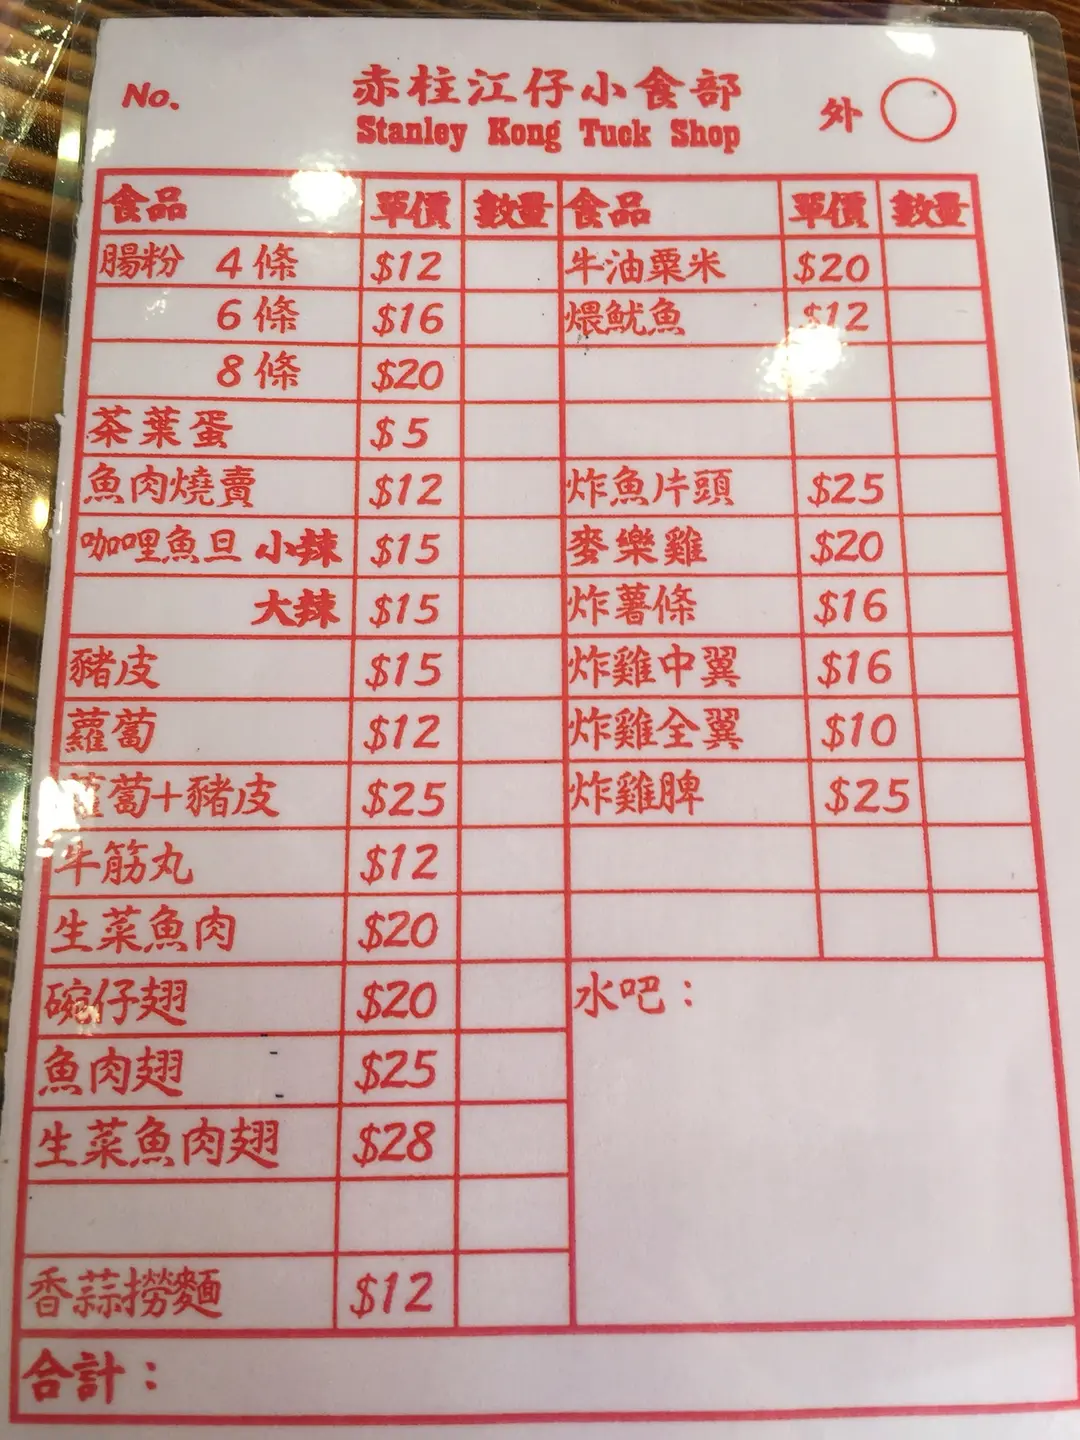 No.
赤柱江仔小食部
Stanley Kong Tuck Shop
外
食品 單價 數量 食品 單價 數量
腸粉 4條 $12 牛油粟米 $20
6條 $16 煨魷魚 $12
8條 $20
茶葉蛋 $5
魚肉燒賣 $12 炸魚片頭 $25
咖哩魚旦 小辣 $15 麥樂雞 $20
大辣 $15 炸薯條 $16
豬皮 $15 炸雞中翼 $16
蘿蔔 $12 炸雞全翼 $10
蘿蔔+豬皮 $25 炸雞脾 $25
牛筋丸 $12
生菜魚肉 $20
碗仔翅 $20 水吧：
魚肉翅 $25
生菜魚肉翅 $28
香蒜撈麵 $12
合計：